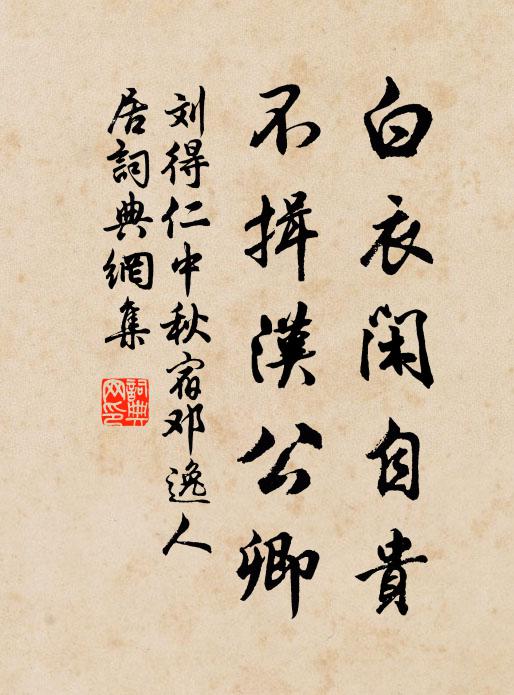 白衣闲自貴
不揖漢公卿
刘得仁中秋宿邓逸人
居詞典網集
詞典
网印